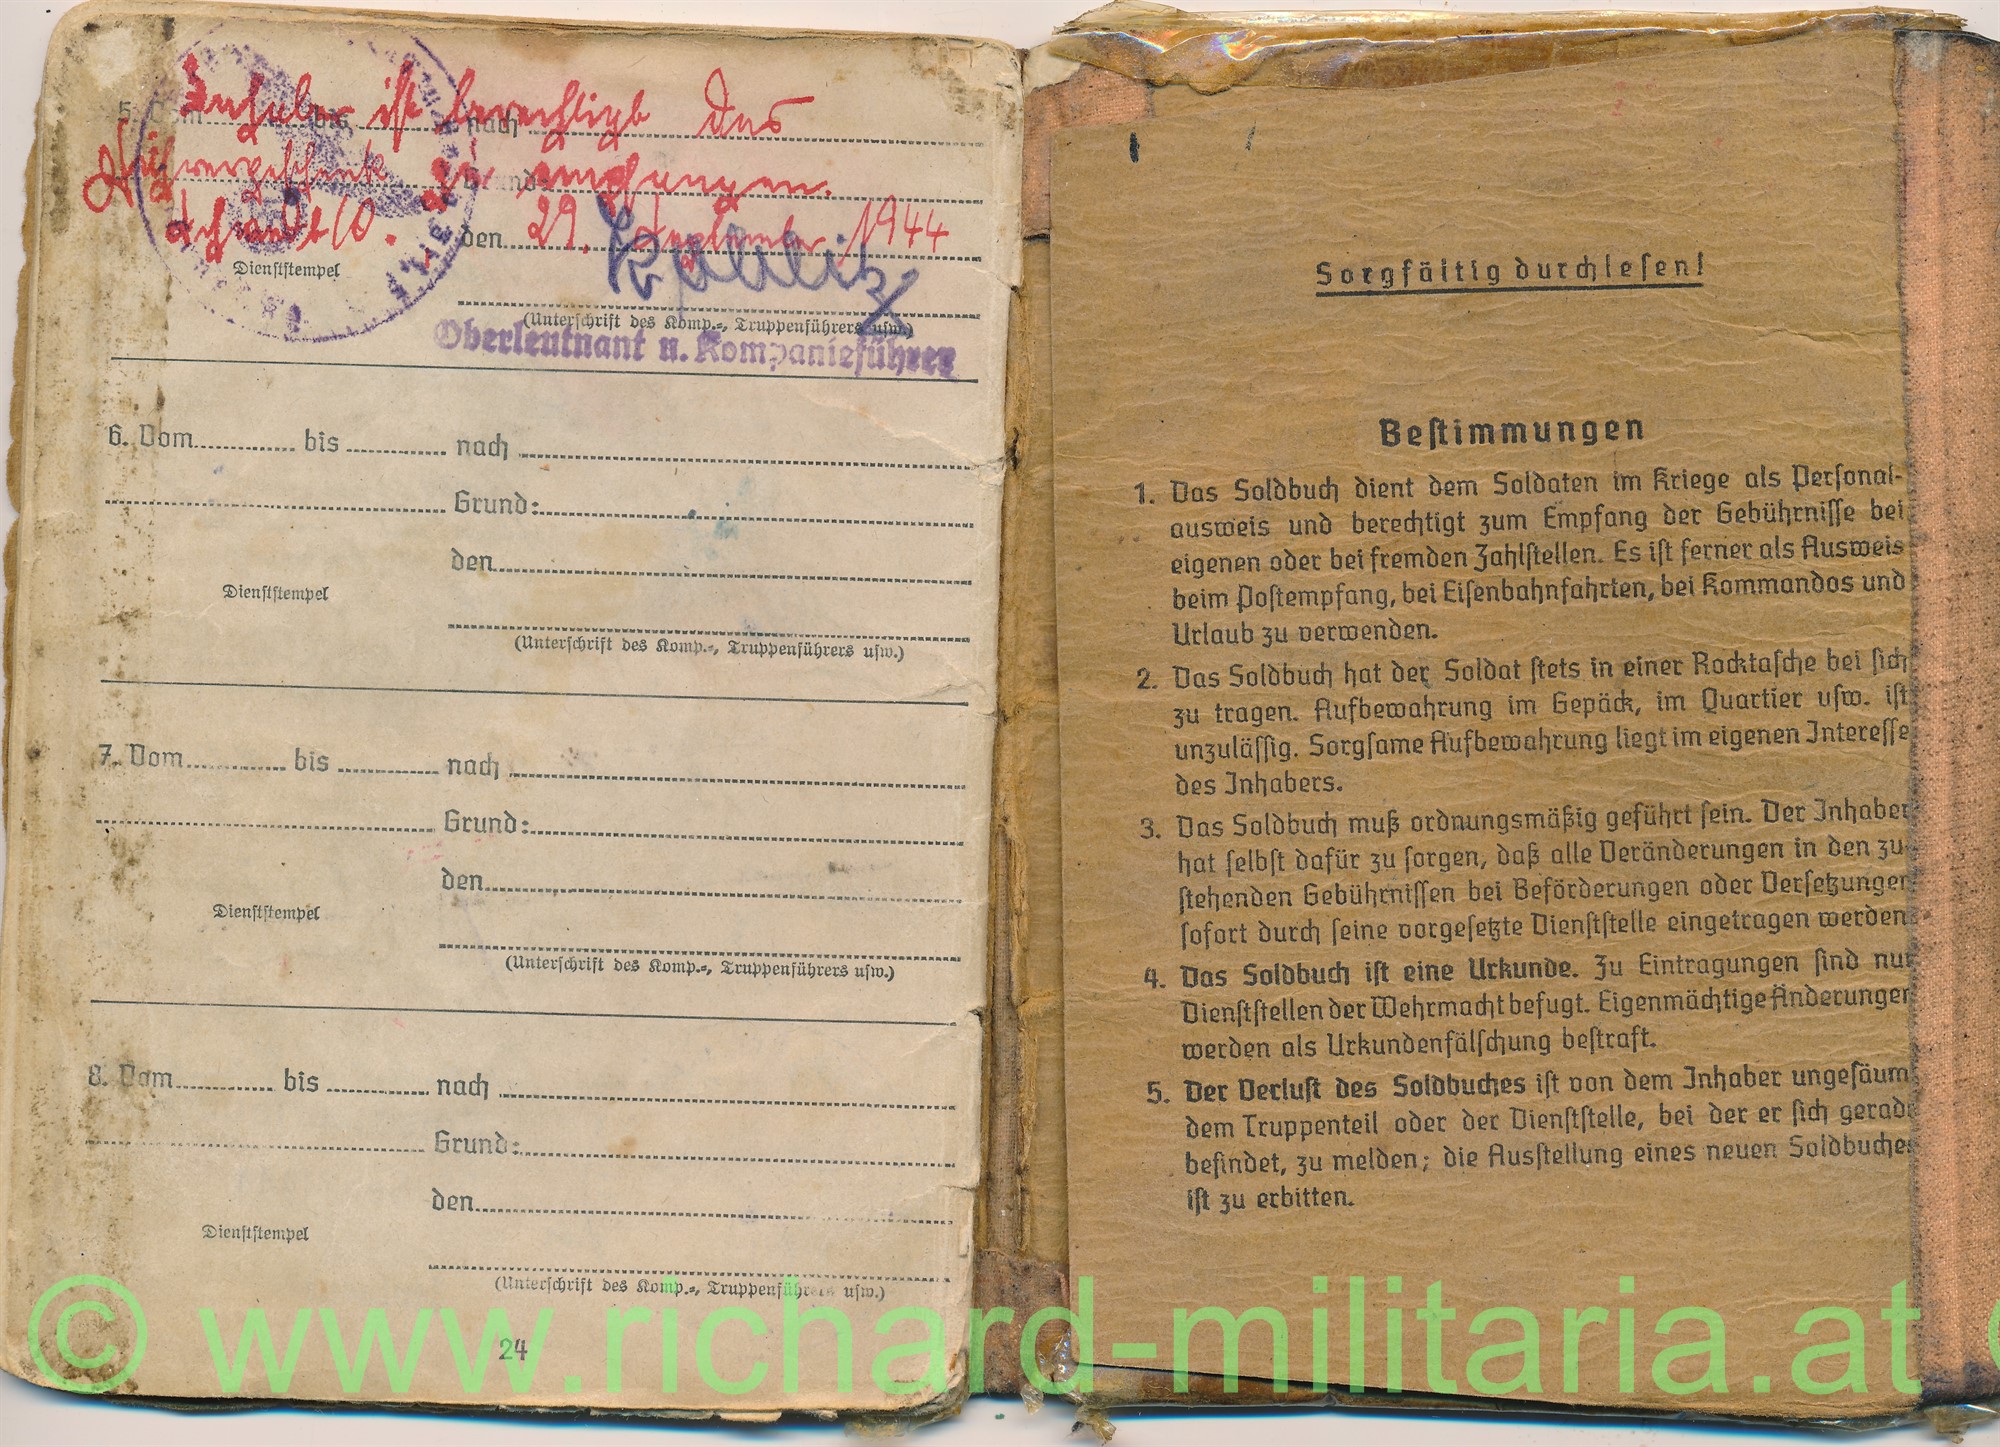 5. Vom bis nach
Inhaber ist berechtigt das
Führergeschenk zu empfangen.
Grund:
den 29. September 1944
Dienststempel
(Unterschrift des Komp.-, Truppenführers usw.)
Oberleutnant u. Kompanieführer
6. Vom bis nach
Grund:
den
Dienststempel
(Unterschrift des Komp.-, Truppenführers usw.)
7. Vom bis nach
Grund:
den
Dienststempel
(Unterschrift des Komp.-, Truppenführers usw.)
8. Vom bis nach
Grund:
den
Dienststempel
(Unterschrift des Komp.-, Truppenführers usw.)
24
Sorgfältig durchlesen!
Bestimmungen
1. Das Soldbuch dient dem Soldaten im Kriege als Personal-
ausweis und berechtigt zum Empfang der Gebührnisse bei
eigenen oder bei fremden Zahlstellen. Es ist ferner als Ausweis
beim Postempfang, bei Eisenbahnfahrten, bei Kommandos und
Urlaub zu verwenden.
2. Das Soldbuch hat der Soldat stets in einer Rocktasche bei sich
zu tragen. Aufbewahrung im Gepäck, im Quartier usw. ist
unzulässig. Sorgsame Aufbewahrung liegt im eigenen Interesse
des Inhabers.
3. Das Soldbuch muß ordnungsmäßig geführt sein. Der Inhaber
hat selbst dafür zu sorgen, daß alle Veränderungen in den zu-
stehenden Gebührnissen bei Beförderungen oder Versetzungen
sofort durch seine vorgesetzte Dienststelle eingetragen werden
4. Das Soldbuch ist eine Urkunde. Zu Eintragungen sind nur
Dienststellen der Wehrmacht befugt. Eigenmächtige Änderungen
werden als Urkundenfälschung bestraft.
5. Der Verlust des Soldbuches ist von dem Inhaber ungesäum
dem Truppenteil oder der Dienststelle, bei der er sich gerade
befindet, zu melden; die Ausstellung eines neuen Soldbuches
ist zu erbitten.
© www.richard-militaria.at ©